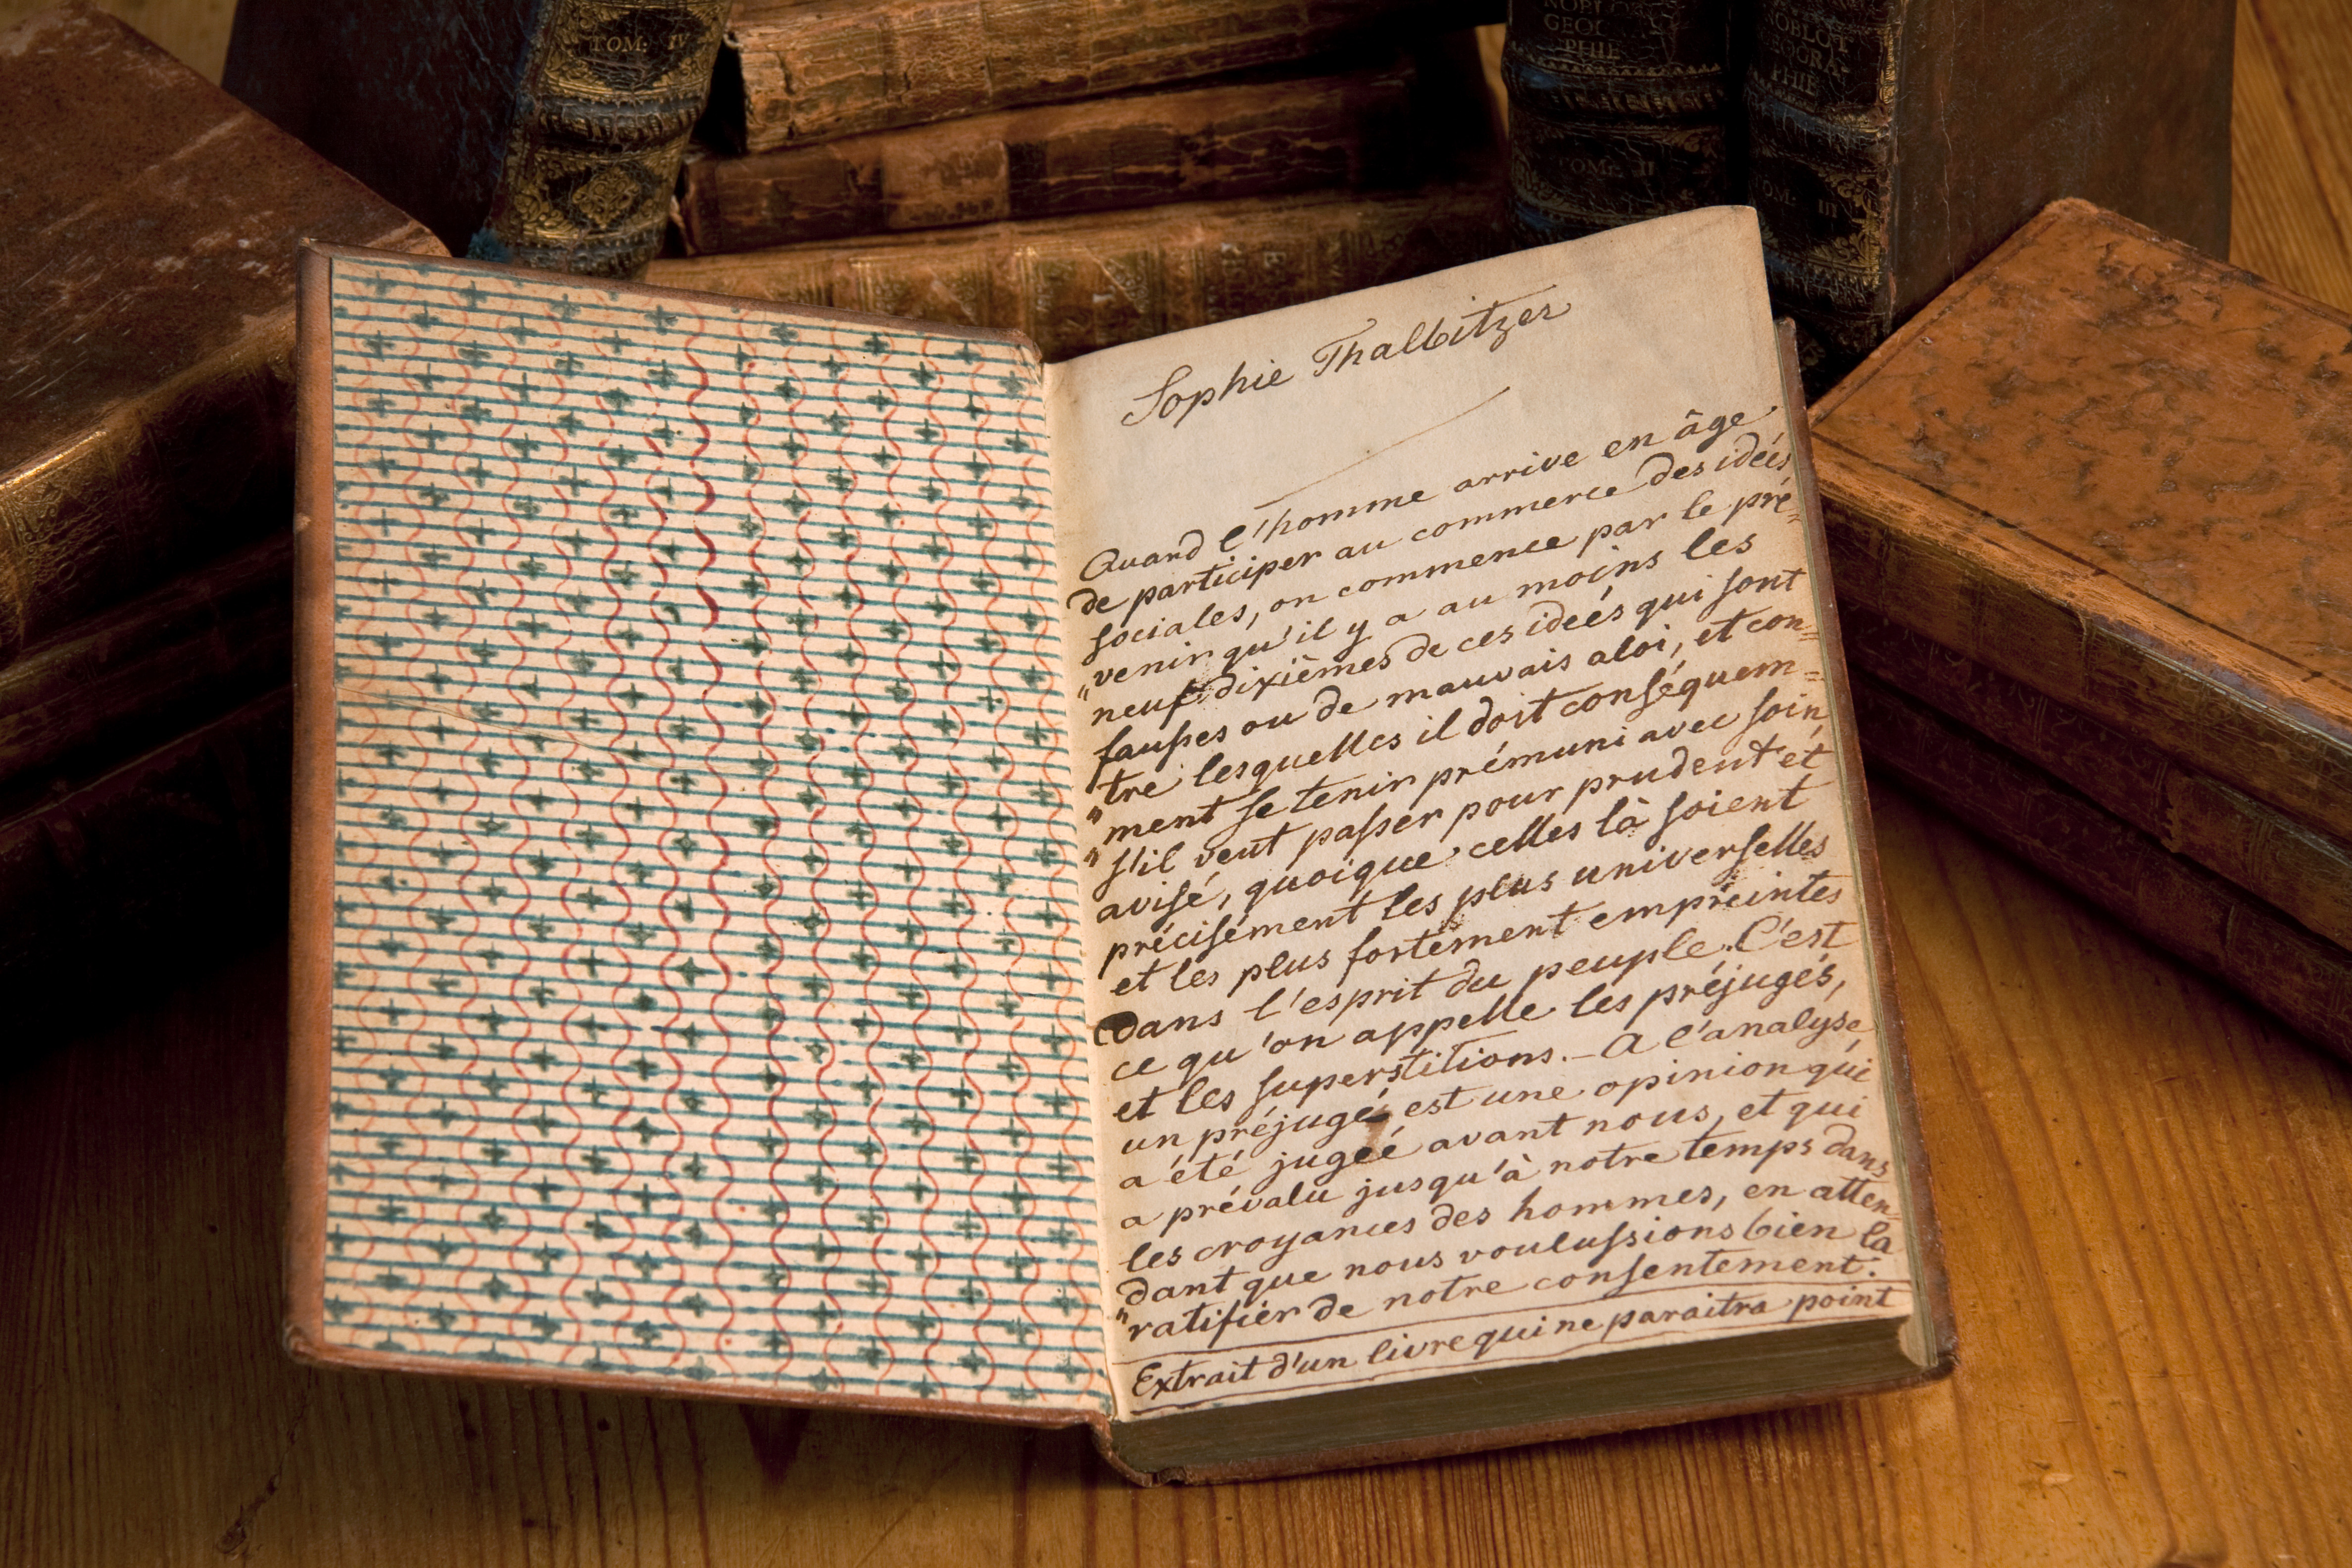 TOM: IV
NOBLOT
GEOGRA-
PHIE
TOM: II
NOBLOT
GEOGRA-
PHIE
TOM: III
Sophie Thalbitzer
Quand l'homme arrive en âge
de participer au commerce des idées
sociales, on commence par le pré=
"venir qu'il y a au moins les
neuf dixièmes de ces ideés qui sont
fausses ou de mauvais aloi, et con=
"tre lesquelles il doit conséquem=
"ment se tenir prémuni avec soin,
"s'il veut passer pour prudent et
avisé, quoique celles là soient
précisément les plus universelles
et les plus fortement empreintes
dans l'esprit du peuple. C'est
ce qu'on appelle les préjugés,
et les superstitions. – A l'analyse,
un préjugé est une opinion qui
a été jugeé avant nous, et qui
a prévalu jusqu'à notre temps dans
les croyances des hommes, en atten=
dant que nous voulussions bien la
"ratifier de notre consentement.
Extrait d'un livre qui ne paraitra point